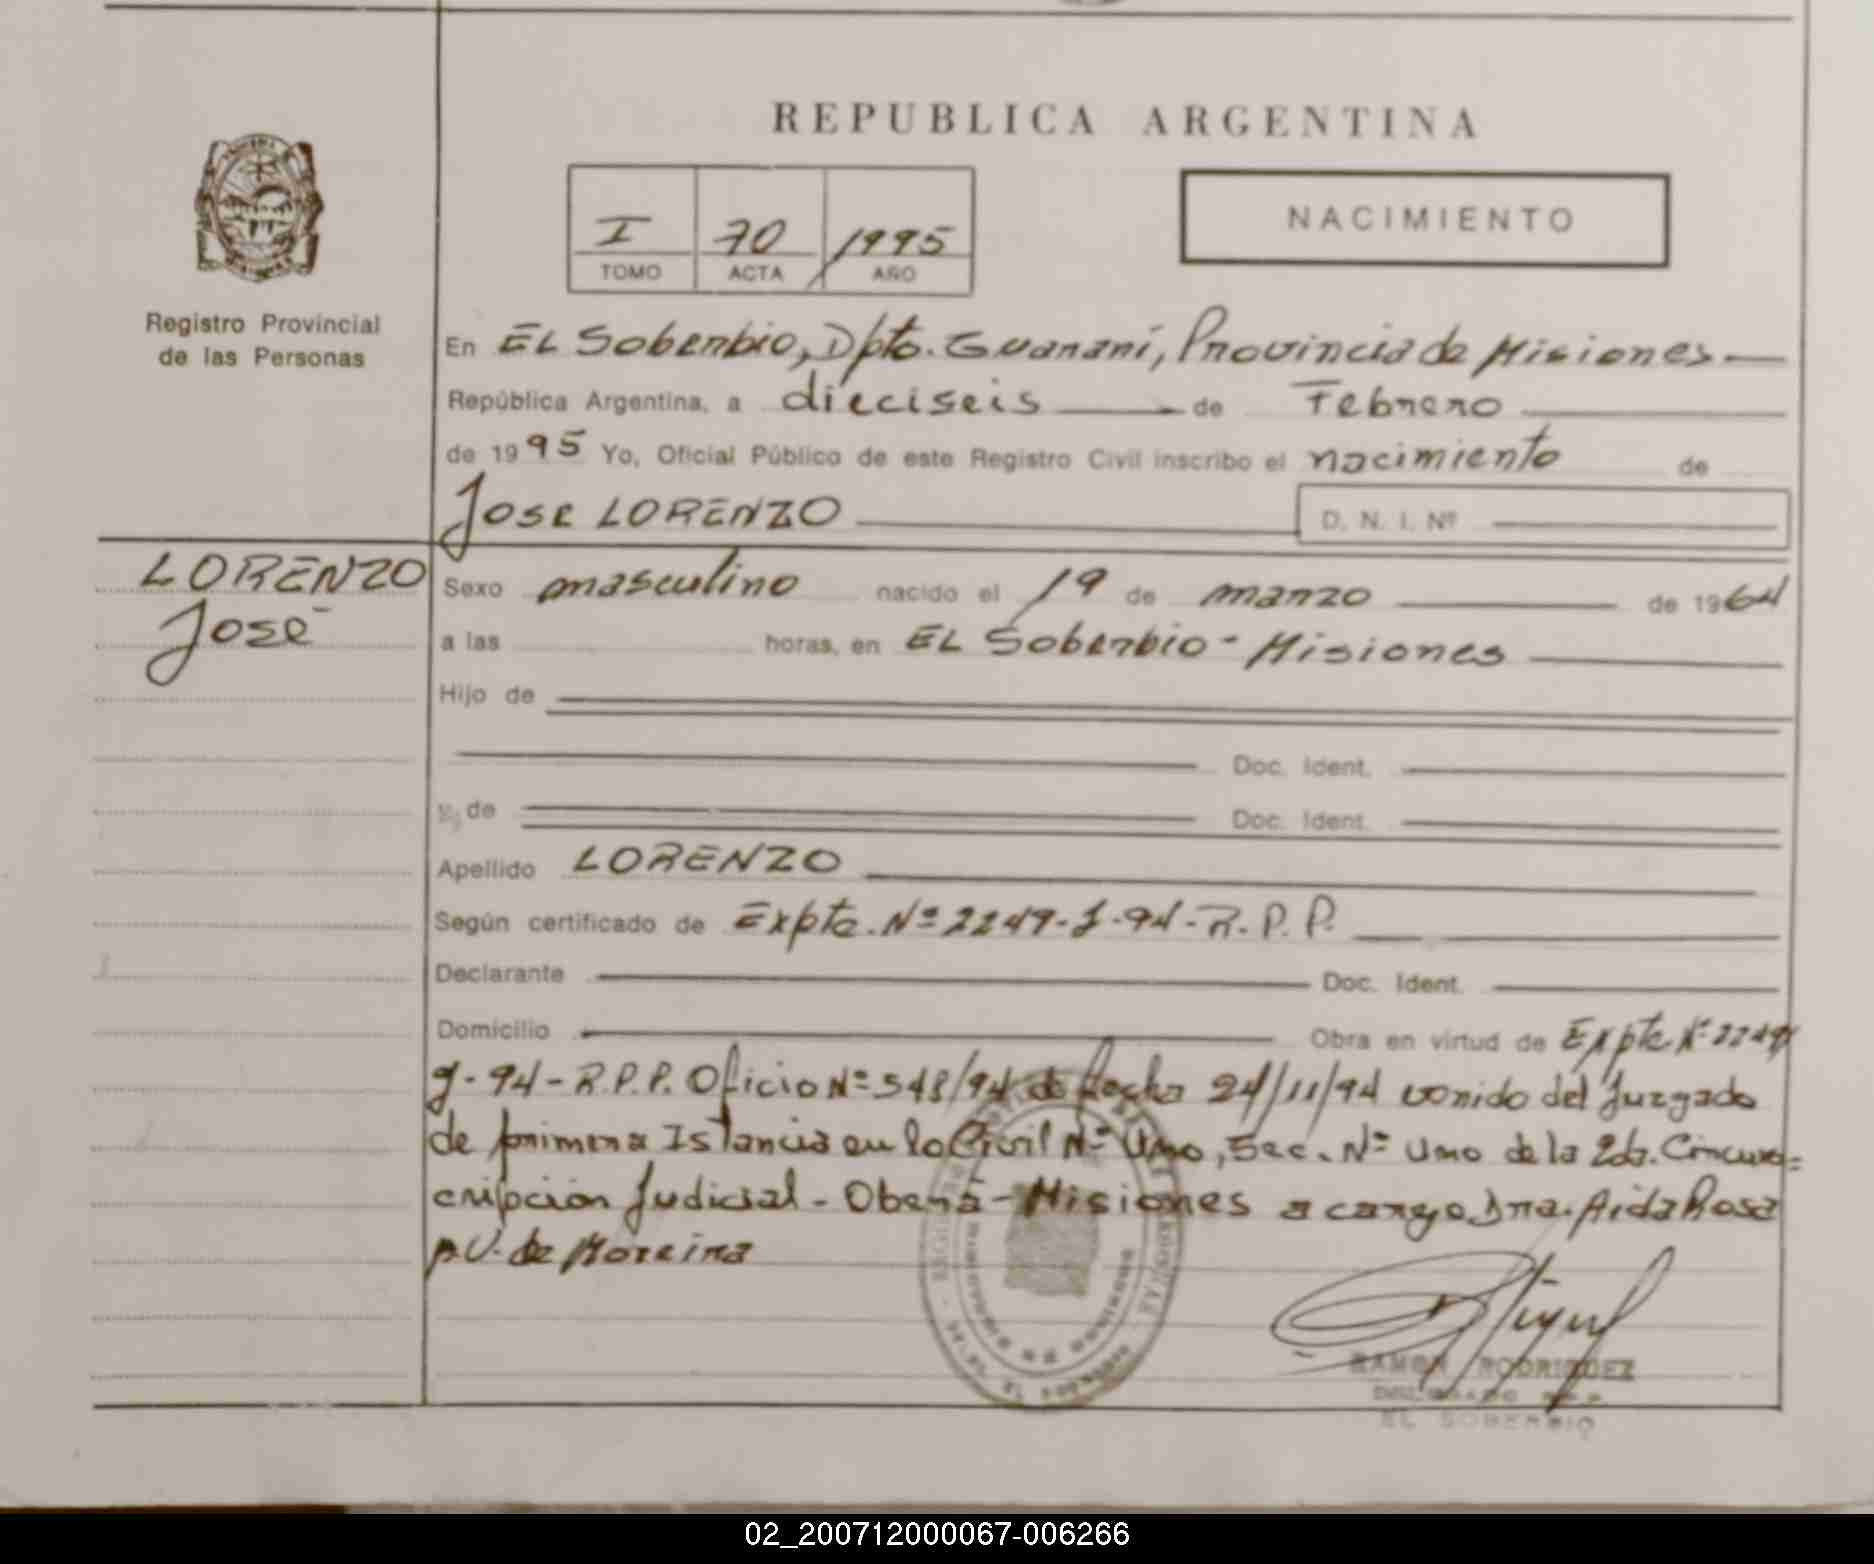 REPUBLICA ARGENTINA
I 70 1995
TOMO ACTA AÑO
NACIMIENTO
Registro Provincial
de las Personas
En EL Soberbio, Dpto. Guaraní, Provincia de Misiones
República Argentina, a dieciseis de Febrero
de 1995 Yo, Oficial Público de este Registro Civil inscribo el nacimiento de
Jose LORENZO D. N. I. Nº
LORENZO
José
Sexo masculino nacido el 19 de marzo de 1964
a las horas, en EL Soberbio - Misiones
Hijo de
Doc. Ident.
y de Doc. Ident.
Apellido LORENZO
Según certificado de Expte. Nº 2249-J-94-R.P.P.
Declarante Doc. Ident.
Domicilio Obra en virtud de Expte Nº 2249
J-94-R.P.P. Oficio Nº 548/94 de fecha 24/11/94 venido del Juzgado
de primera Istancia en lo Civil Nº Uno, Sec. Nº Uno de la 2da. Circuns=
cripción Judicial - Oberá - Misiones a cargo Dra. Aida Rosa
p.V. de Moreira
RAMON RODRIGUEZ
EL SOBERBIO
02_200712000067-006266